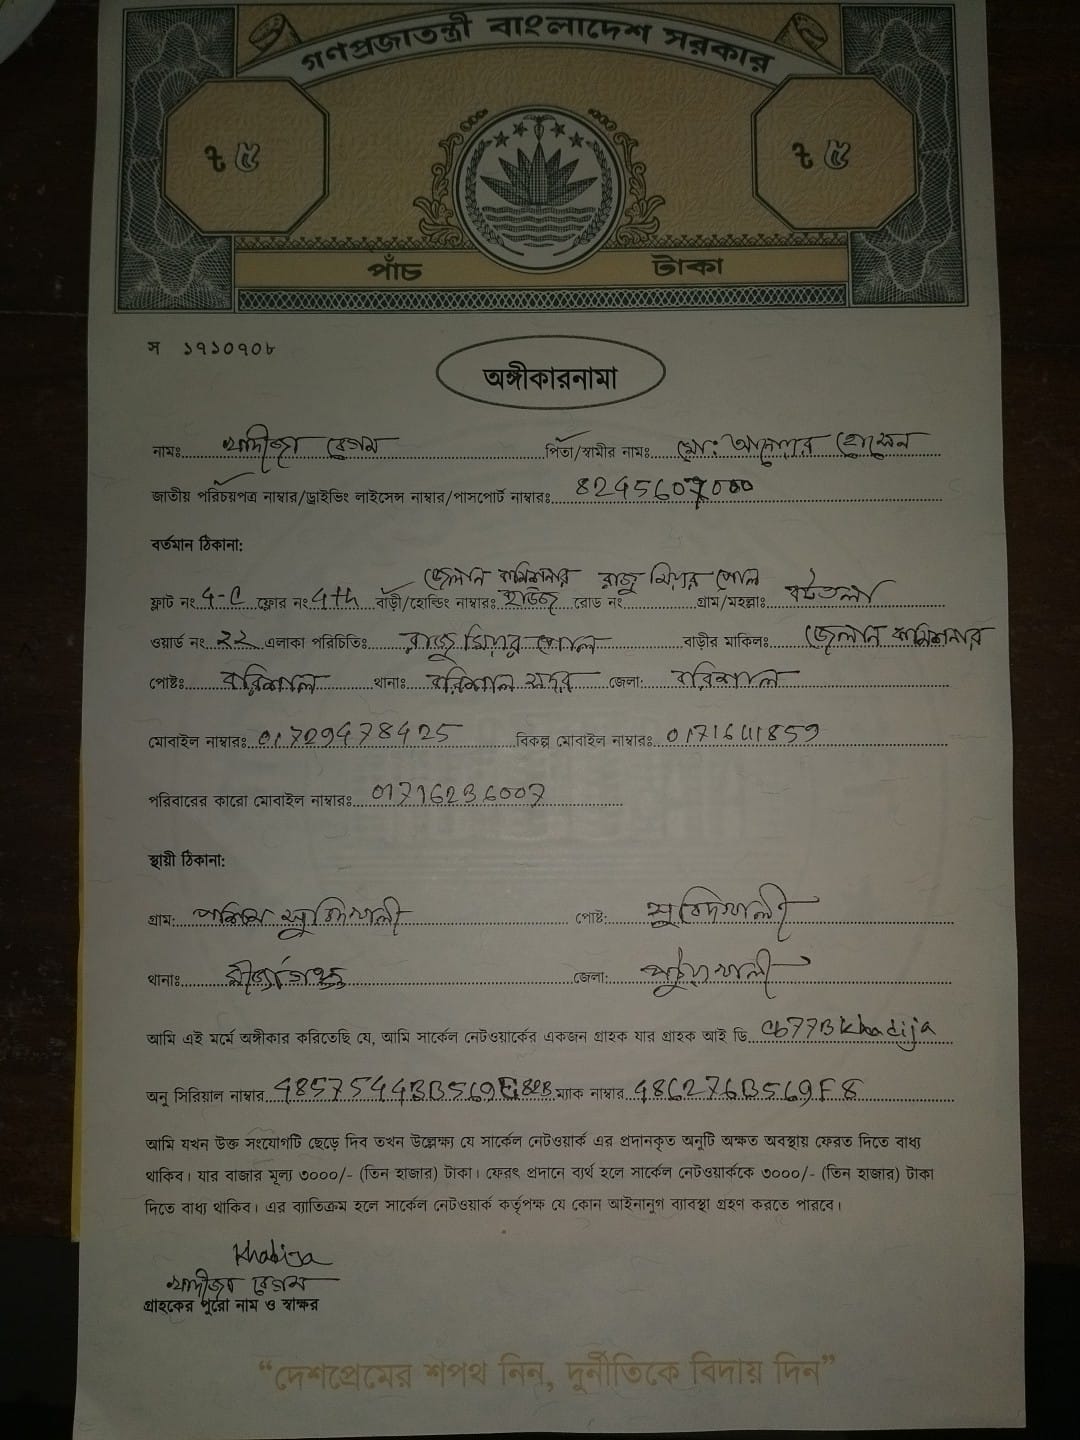 গণপ্রজাতন্ত্রী বাংলাদেশ সরকার
৳ ৫ ৳ ৫
পাঁচ টাকা
স ১৭১০৭০৮
অঙ্গীকারনামা
নামঃ খাদীজা বেগম পিতা/স্বামীর নাম: মো: আনোয়ার হোসেন
জাতীয় পরিচয়পত্র নাম্বার/ড্রাইভিং লাইসেন্স নাম্বার/পাসপোর্ট নাম্বারঃ 8245607000
বর্তমান ঠিকানা:
জেলাল কমিশনার রাজু মিয়ার পোল
ফ্লাট নং 4-C ফ্লোর নং 4th বাড়ী/হোল্ডিং নাম্বারঃ হাউজ রোড নং গ্রাম/মহল্লাঃ বটতলা
ওয়ার্ড নং ২২ এলাকা পরিচিতিঃ রাজু মিয়ার পোল বাড়ীর মাকিলঃ জেলাল কমিশনার
পোষ্টঃ বরিশাল থানাঃ বরিশাল সদর জেলা: বরিশাল
মোবাইল নাম্বারঃ 01729478425 বিকল্প মোবাইল নাম্বারঃ 01716411859
পরিবারের কারো মোবাইল নাম্বারঃ 01716236007
স্থায়ী ঠিকানা:
গ্রাম: পশ্চিম সুবিদখালী পোষ্ট: সুবিদখালী
থানাঃ মীর্জাগঞ্জ জেলা: পটুয়াখালী
আমি এই মর্মে অঙ্গীকার করিতেছি যে, আমি সার্কেল নেটওয়ার্কের একজন গ্রাহক যার গ্রাহক আই ডি Cb77BKhadija
অনু সিরিয়াল নাম্বার ম্যাক নাম্বার 486276B569F8
আমি যখন উক্ত সংযোগটি ছেড়ে দিব তখন উল্লেক্ষ্য যে সার্কেল নেটওয়ার্ক এর প্রদানকৃত অনুটি অক্ষত অবস্থায় ফেরত দিতে বাধ্য
থাকিব। যার বাজার মূল্য ৩০০০/- (তিন হাজার) টাকা। ফেরৎ প্রদানে ব্যর্থ হলে সার্কেল নেটওয়ার্ককে ৩০০০/- (তিন হাজার) টাকা
দিতে বাধ্য থাকিব। এর ব্যাতিক্রম হলে সার্কেল নেটওয়ার্ক কর্তৃপক্ষ যে কোন আইনানুগ ব্যাবস্থা গ্রহণ করতে পারবে।
Khadija
খাদীজা বেগম
গ্রাহকের পুরো নাম ও স্বাক্ষর
“দেশপ্রেমের শপথ নিন, দুর্নীতিকে বিদায় দিন”